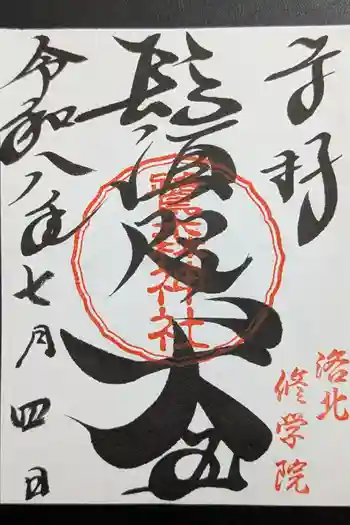 奉拝
洛北
修学院
鬚咫天王
鷺森神社
令和八年七月四日